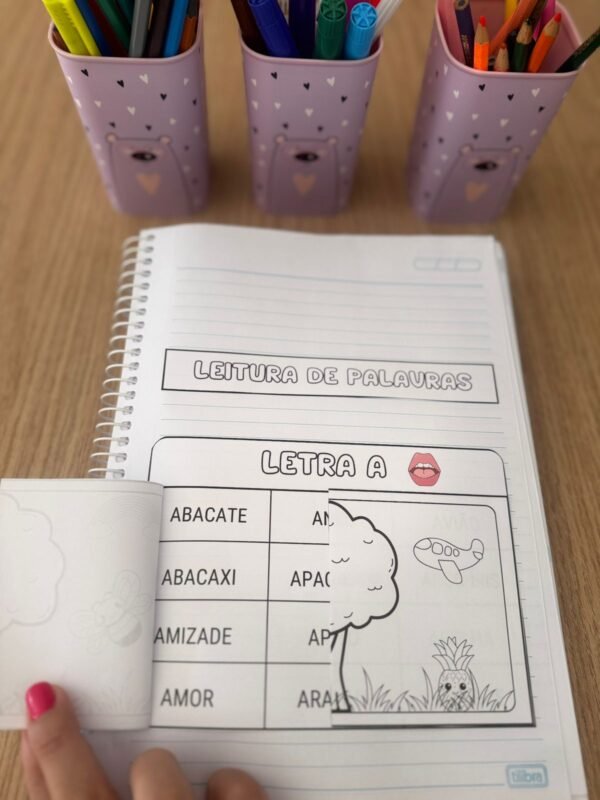 LEITURA DE PALAVRAS
LETRA A
ABACATE
ABACAXI
AMIZADE
AMOR
tilibra